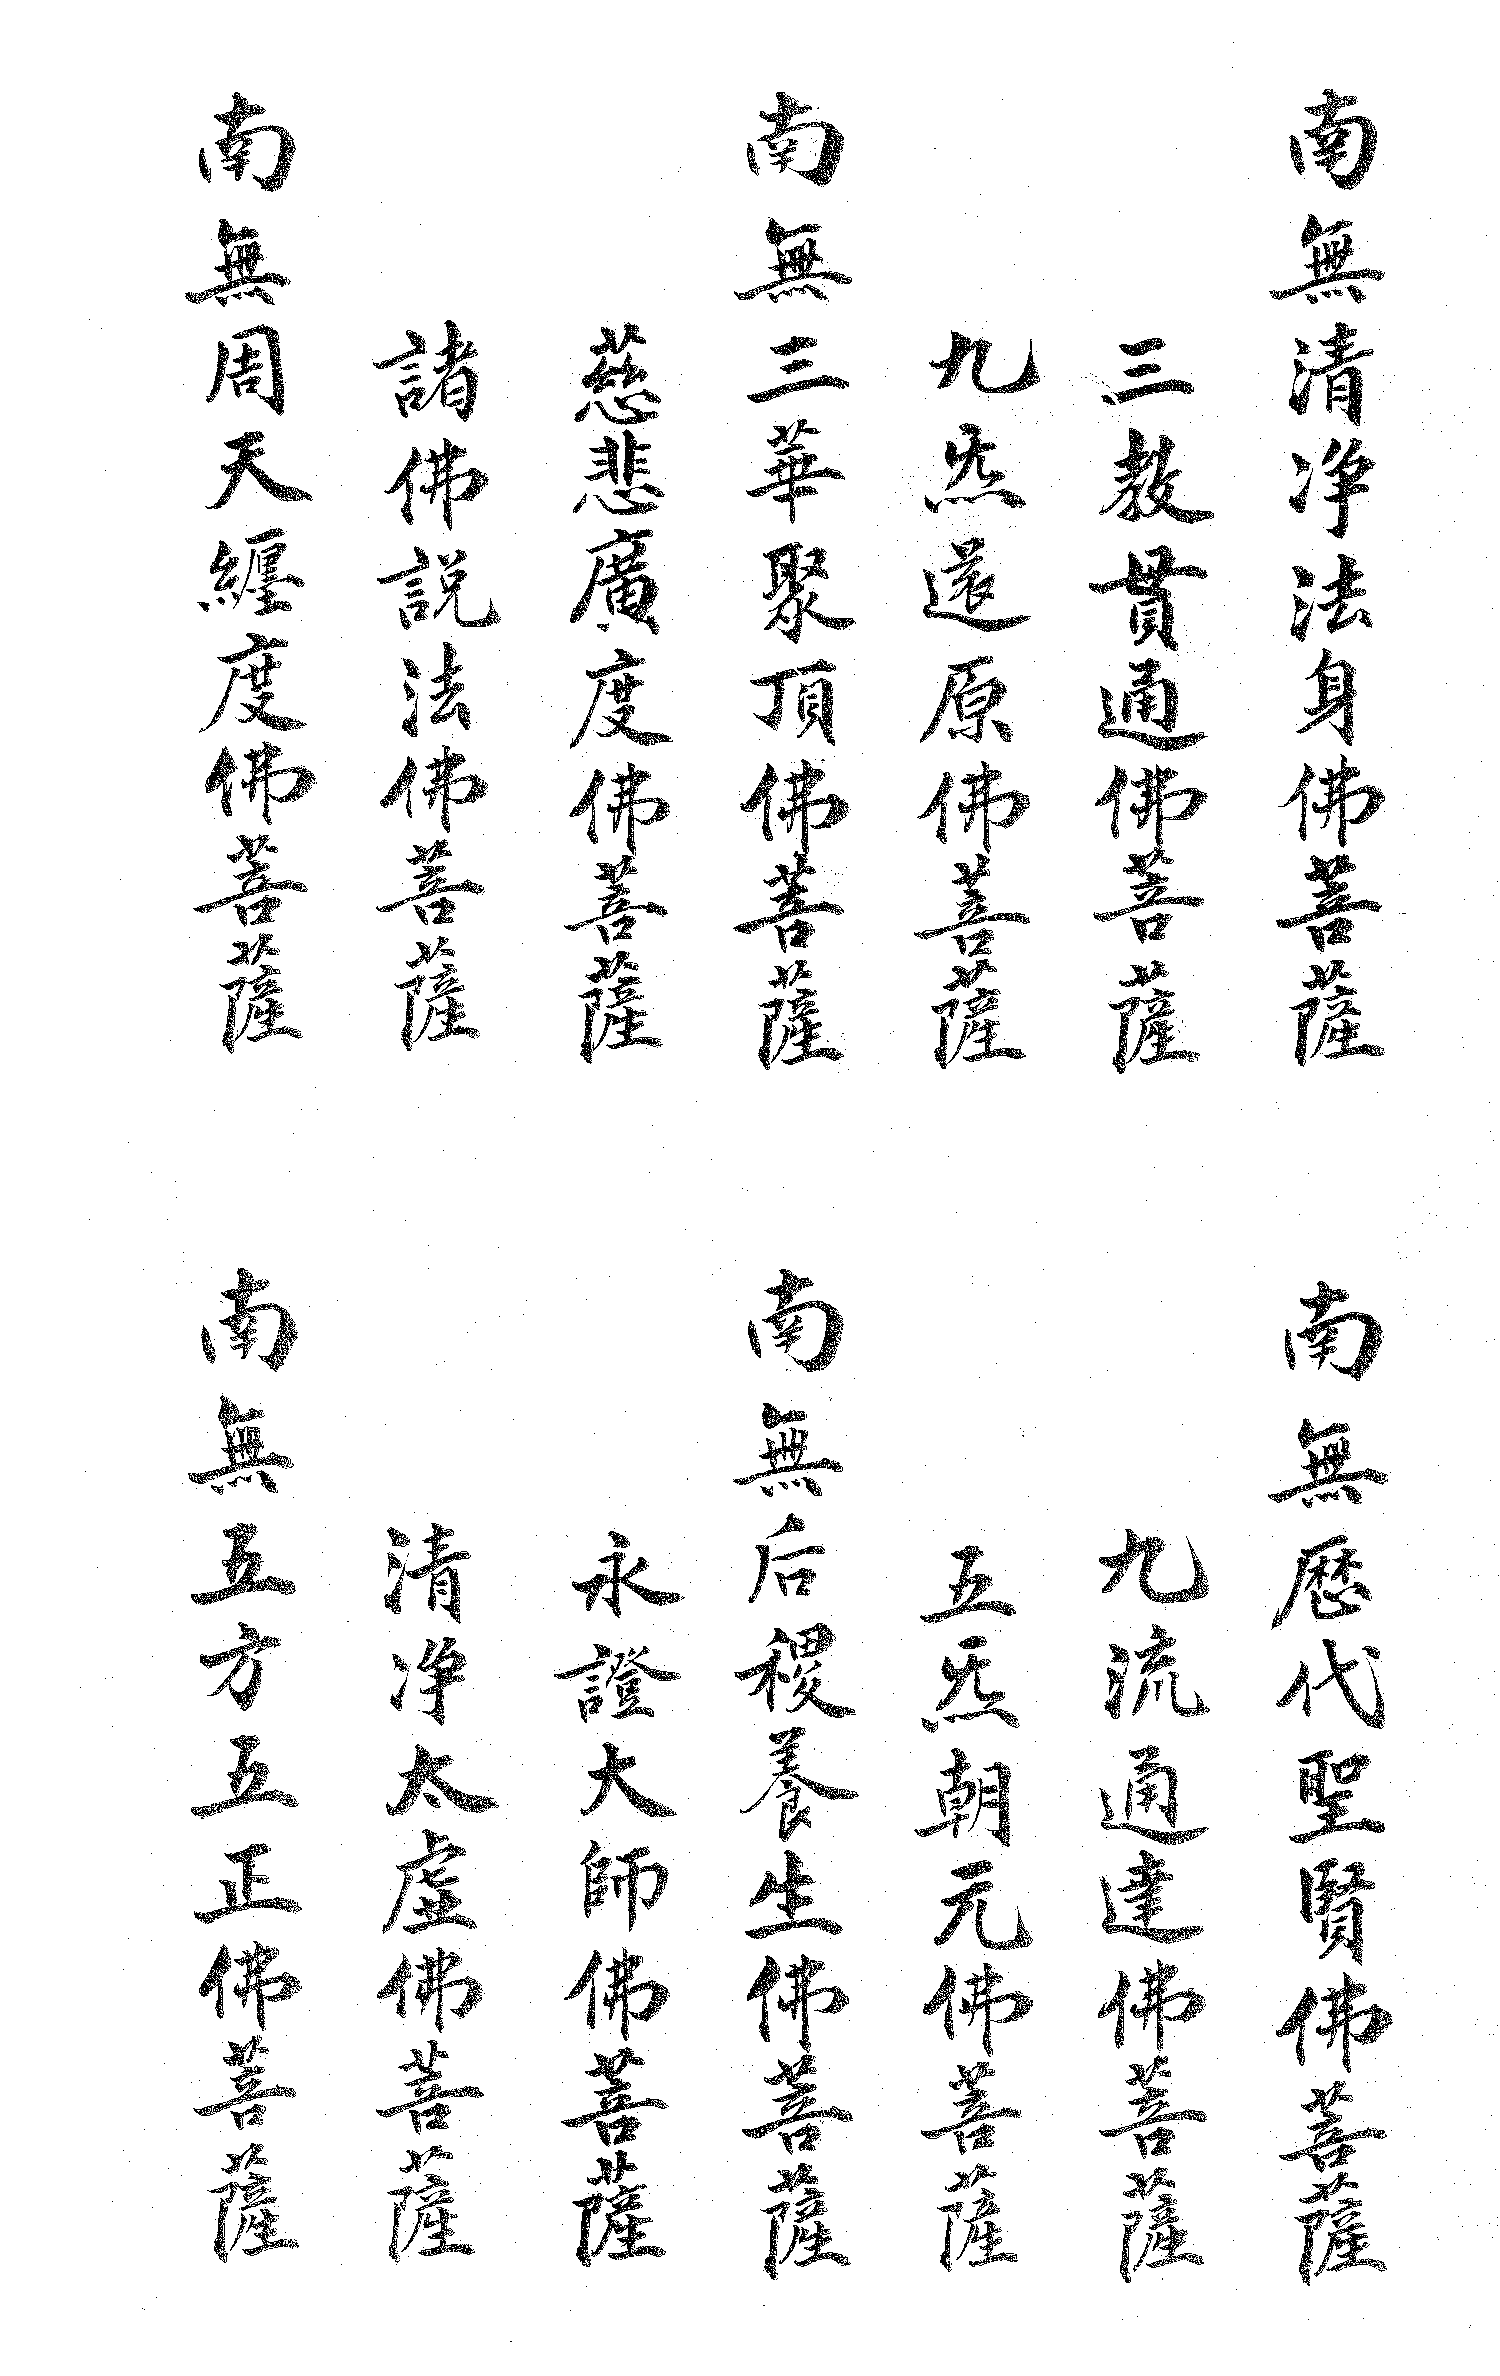 南無清净法身佛菩薩
三教貫通佛菩薩
九炁還原佛菩薩
南無三華聚頂佛菩薩
慈悲廣度佛菩薩
諸佛説法佛菩薩
南無周天纏度佛菩薩
南無歷代聖賢佛菩薩
九流通達佛菩薩
五炁朝元佛菩薩
南無后稷養生佛菩薩
永證大師佛菩薩
清净太虛佛菩薩
南無五方五正佛菩薩